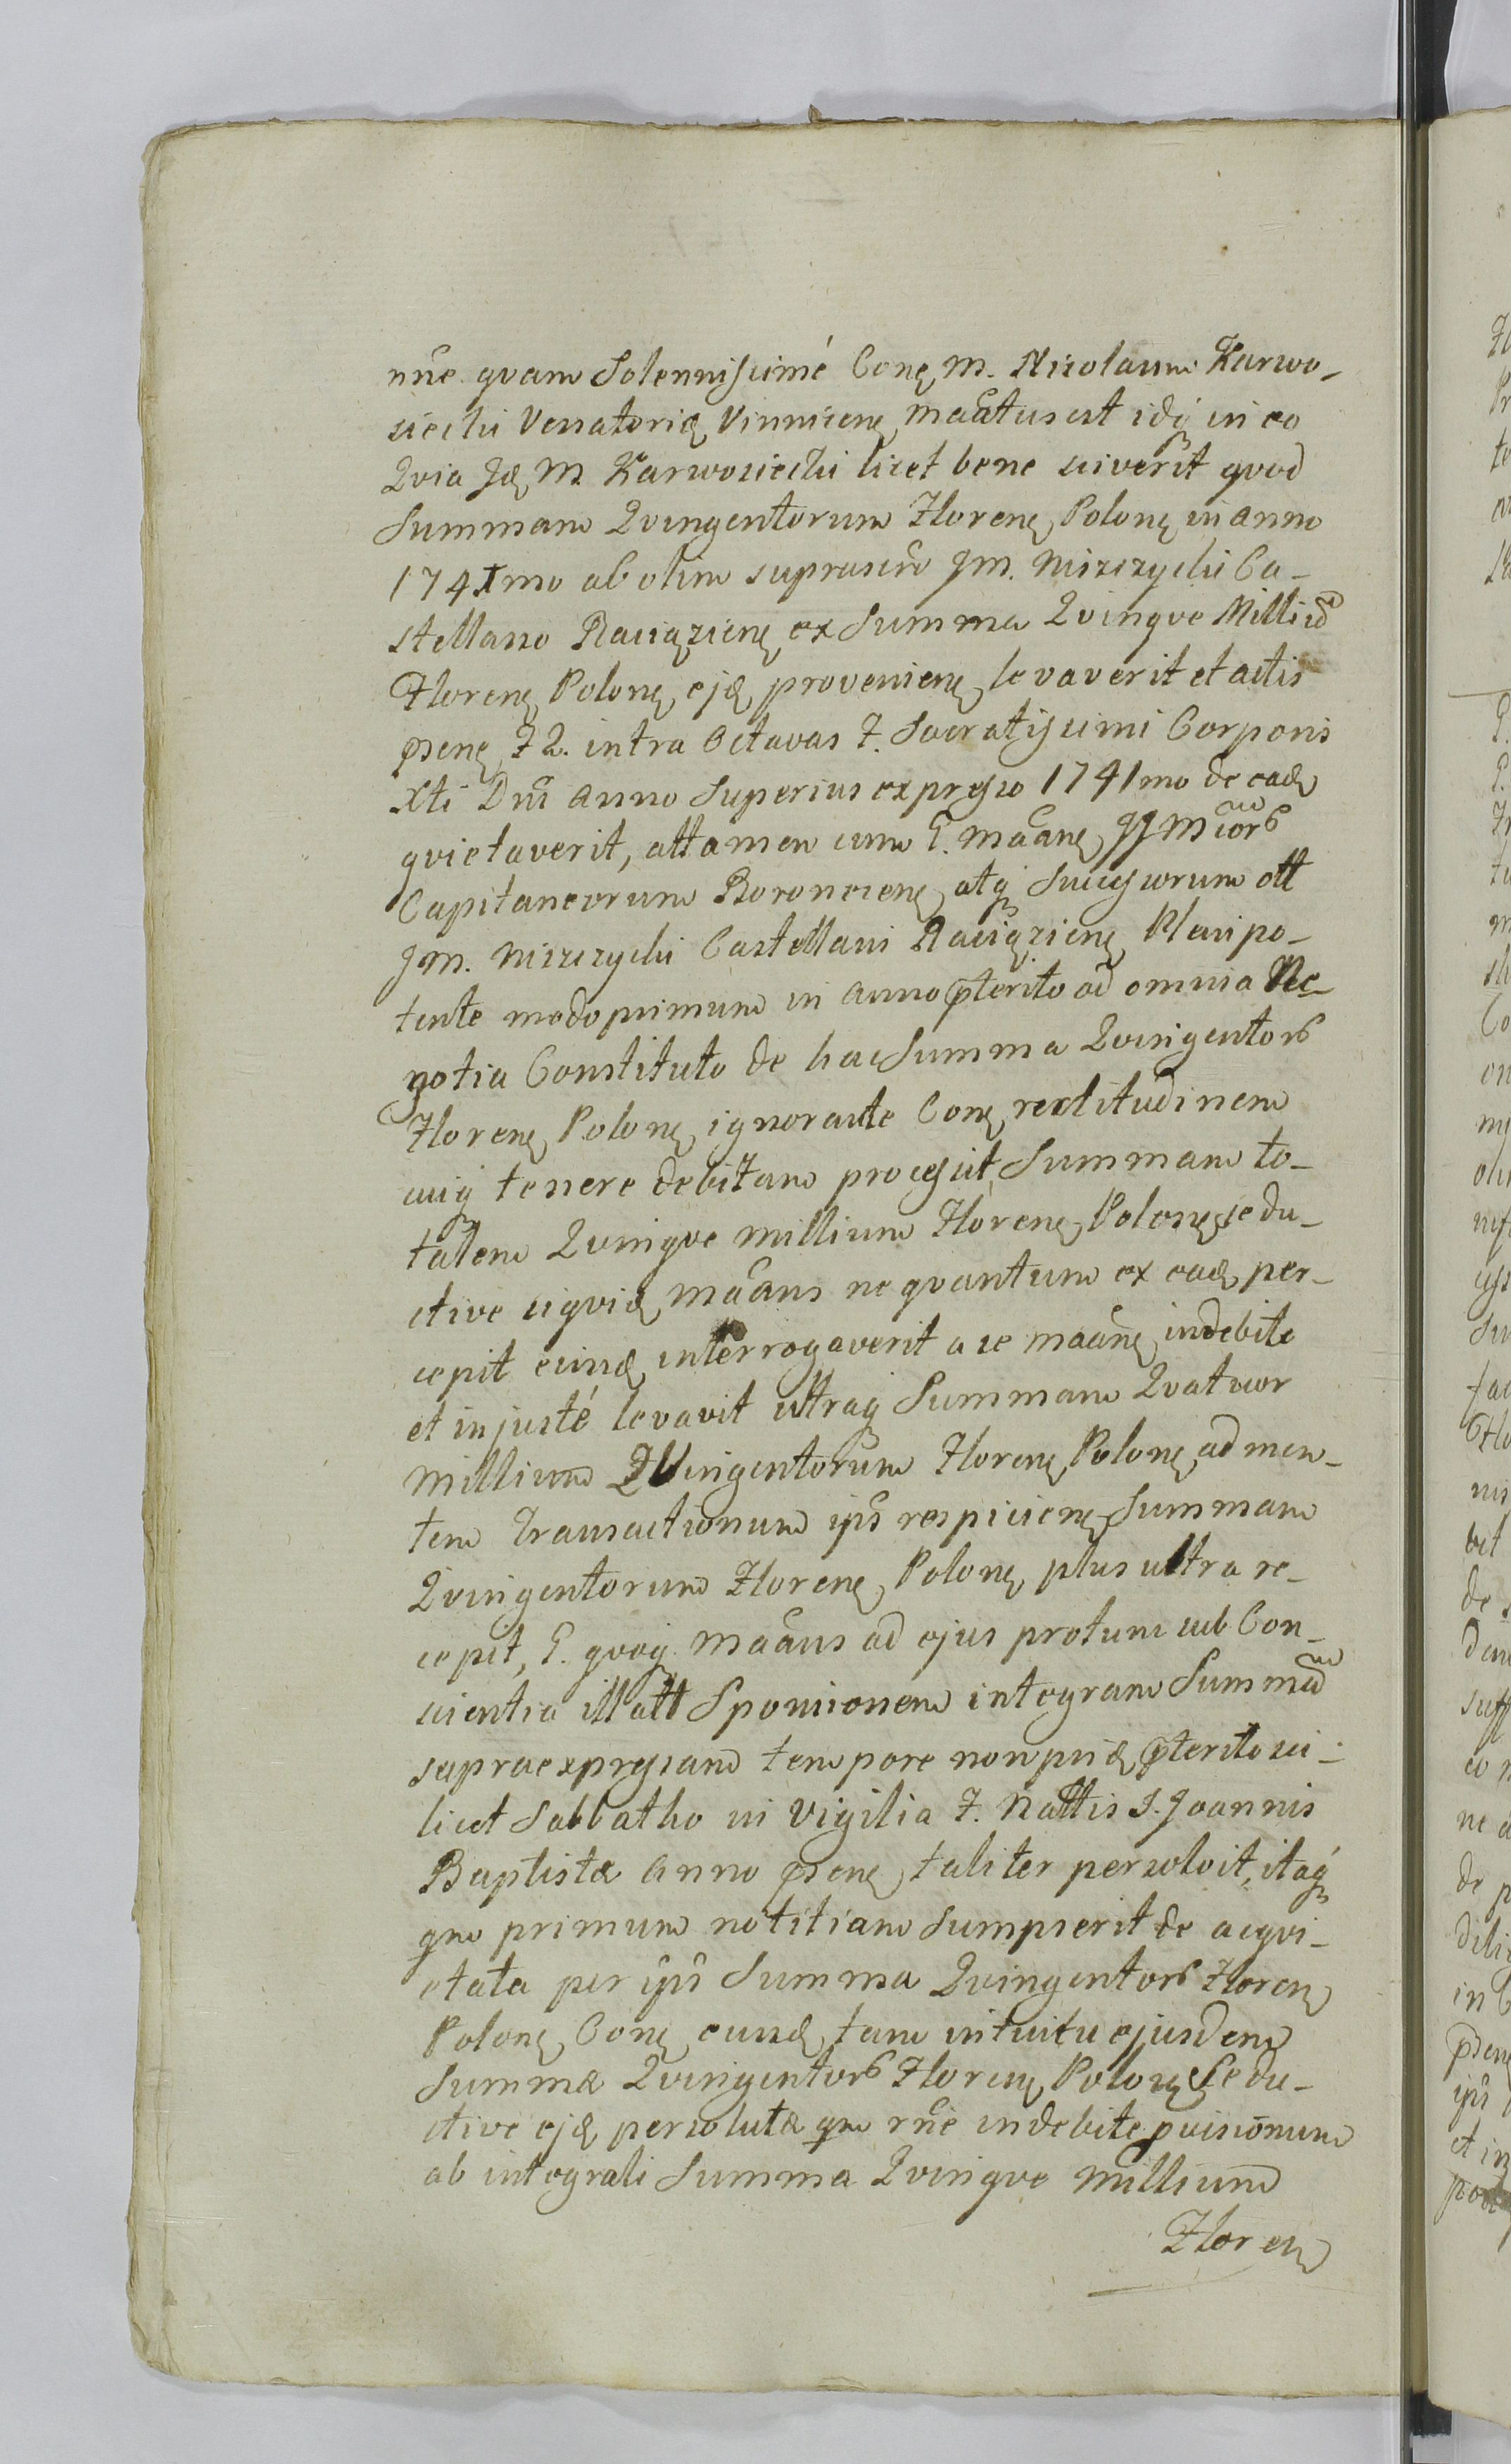 nne quam Solennissimé Conę M. Nicolaum Karwo-
siecki Venatorię Vinnicenę maatus est idq in eo
Qvia Jdę M Karwosiecki licet bene sciverit qvod
Summam Qvingentorum Florenę Polonę in Anno
1741mo ab olim suprascro JM. Niszczycki Ca-
stellano Raciązienę ex Summa Qvinqve Milliu
Florenę Polonę ejdę provenienę levaverit et actis
psenę F2. intra Octavas F. Sacratissimi Corporis
Xti Dni Anno Superius expresso 1741mo de eadę
qvietaverit, attamen cum G. maanę JJM
Capitaneorum Boroncienę atq Successorum olt
JM. Niszczycki Castellani Raciązienę Plenipo-
tente modo primum in Anno pterito ad omnia Ne-
gotia Constituto de hac Summa Qvingentor
Florenę Polonę ignorante Conę rectitudinem
cuiq tenere debitam processit, Summam to-
talem Qvinqve millium Florenę Polonę sedu-
ctive siqvidę maans ne qvantum ex eadę per-
cepit eundę interrogaverit a se maanę indebite
et injusté levavit ultraq Summam Qvatuor
Millium QVingentorum Florenę Polonę ad men-
tem Transactionum ips respicienę Summam
Qvingentorum Florenę Polonę plus ultra re-
cepit, G. qvoq maans ad ejus protunc sub Con-
scientia illatt Sponsionem integram Summa
supraexpressam tempore non pridę pterito sci-
licet Sabbatho in Vigilia F. Nattis S. Joannis
Baptistæ Anno psenę taliter persolvit, itaq
qm primum notitiam Sumpserit de acqvi-
etata per ips Summa Qvingentor Florenę
Polonę Conę eundę tam intuitu ejusdem
Summæ Qvingentor Florenę Polonę Sedu-
ctive ejdę persolutæ qm rne indebite
ab integrali Summa Qvinqve Millium
Florenę